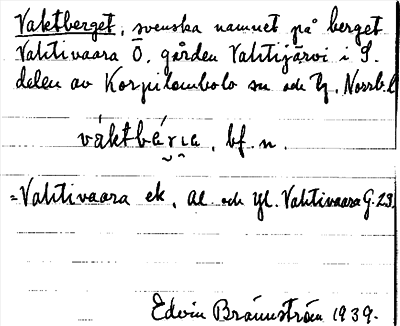 Vaktberget, svenska namnet på berget
Vahtivaara Ö. gården Vahtijärvi i S.
delen av Korpilombolo sn och tg, Norrb. l
váktbé̬rı̯a, bf. n.
=Vahtivaara ek, al. och yl. Vahtivaara G. 23.
Edvin Brännström 1939.